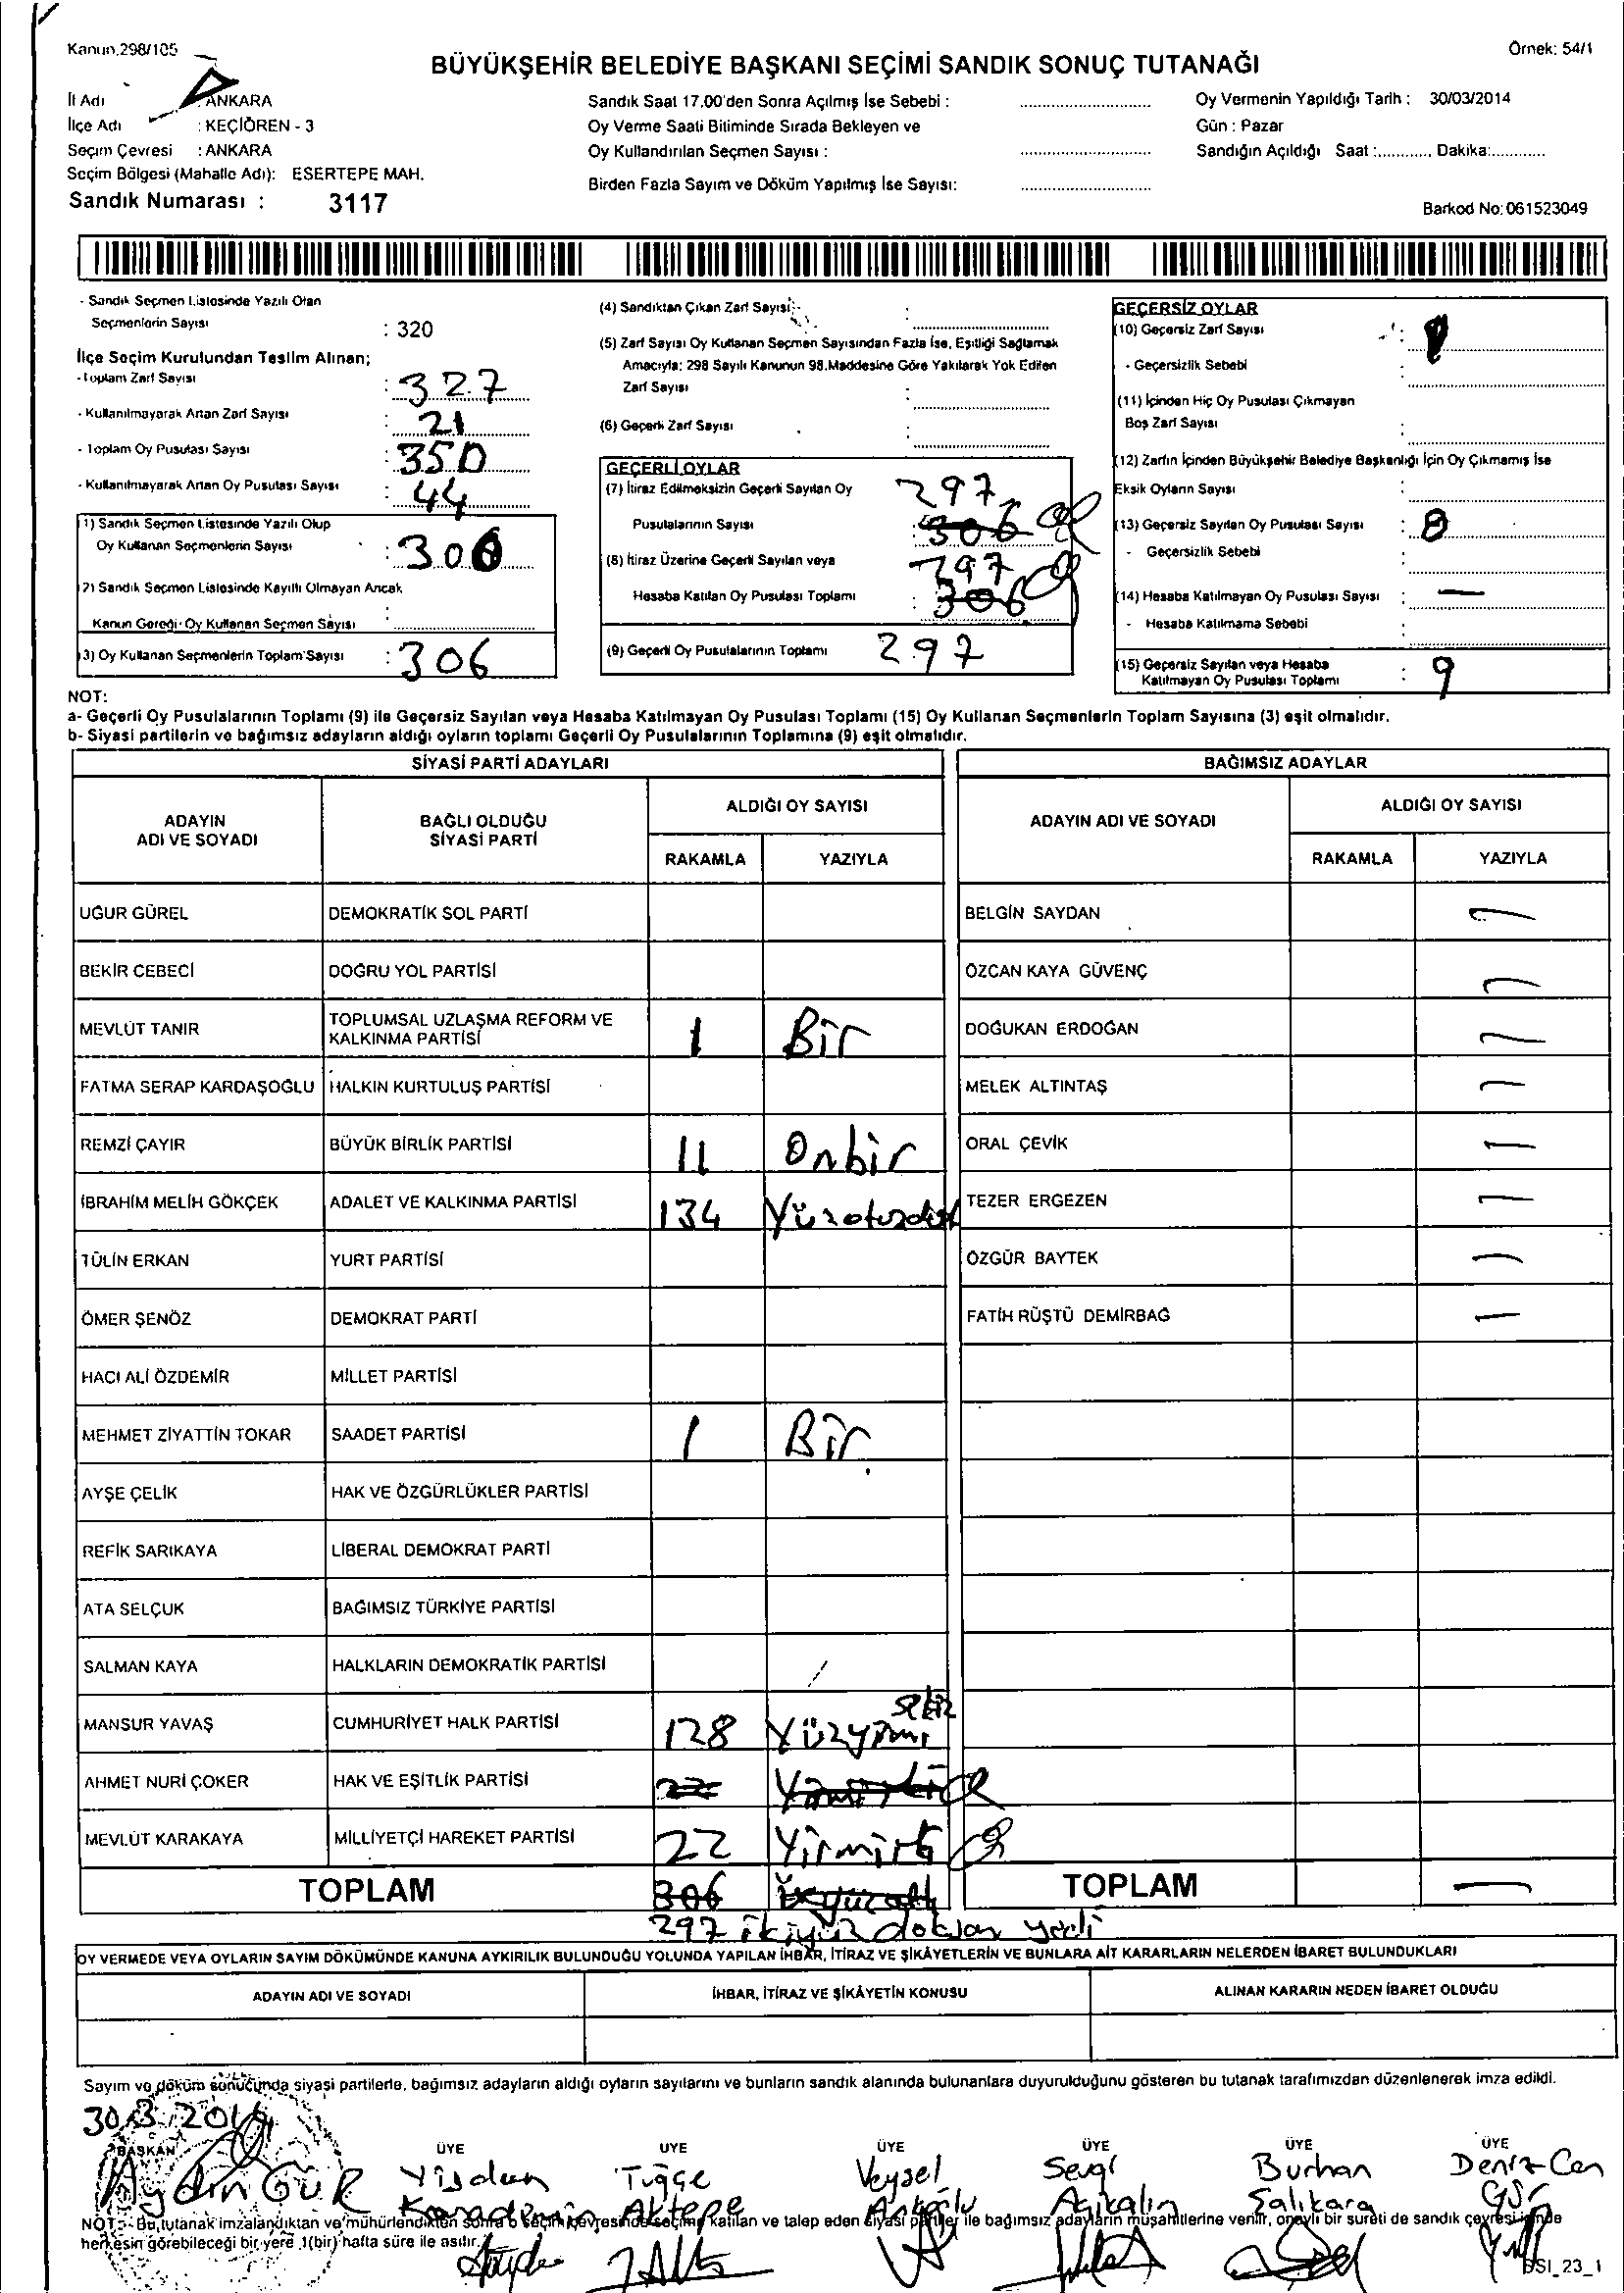 Kanun.298/105
Örnek: 54/1
BÜYÜKŞEHİR BELEDİYE BAŞKANI SEÇİMİ SANDIK SONUÇ TUTANAĞI
İl Adı : ANKARA
İlçe Adı : KEÇİÖREN - 3
Seçim Çevresi : ANKARA
Seçim Bölgesi (Mahalle Adı): ESERTEPE MAH.
Sandık Numarası : 3117
Sandık Saat 17.00'den Sonra Açılmış İse Sebebi :
Oy Verme Saati Bitiminde Sırada Bekleyen ve
Oy Kullandırılan Seçmen Sayısı :
Birden Fazla Sayım ve Döküm Yapılmış İse Sayısı:
Oy Vermenin Yapıldığı Tarih : 30/03/2014
Gün : Pazar
Sandığın Açıldığı Saat :............ Dakika:............
Barkod No: 061523049
- Sandık Seçmen Listesinde Yazılı Olan
Seçmenlerin Sayısı : 320
İlçe Seçim Kurulundan Teslim Alınan;
- Toplam Zarf Sayısı : 327
- Kullanılmayarak Artan Zarf Sayısı : 21
- Toplam Oy Pusulası Sayısı : 350
- Kullanılmayarak Artan Oy Pusulası Sayısı : 44
1) Sandık Seçmen Listesinde Yazılı Olup
Oy Kullanan Seçmenlerin Sayısı : 306
2) Sandık Seçmen Listesinde Kayıtlı Olmayan Ancak
Kanun Gereği Oy Kullanan Seçmen Sayısı :
3) Oy Kullanan Seçmenlerin Toplam Sayısı : 306
(4) Sandıktan Çıkan Zarf Sayısı :
(5) Zarf Sayısı Oy Kullanan Seçmen Sayısından Fazla İse, Eşitliği Sağlamak
Amacıyla; 298 Sayılı Kanunun 98.Maddesine Göre Yakılarak Yok Edilen
Zarf Sayısı :
(6) Geçerli Zarf Sayısı :
GEÇERLİ OYLAR
(7) İtiraz Edilmeksizin Geçerli Sayılan Oy 297
Pusulalarının Sayısı : 306
(8) İtiraz Üzerine Geçerli Sayılan veya 297
Hesaba Katılan Oy Pusulası Toplamı : 306
(9) Geçerli Oy Pusulalarının Toplamı 297
GEÇERSİZ OYLAR
(10) Geçersiz Zarf Sayısı :
- Geçersizlik Sebebi :
(11) İçinden Hiç Oy Pusulası Çıkmayan
Boş Zarf Sayısı :
(12) Zarfın İçinden Büyükşehir Belediye Başkanlığı İçin Oy Çıkmamış İse
Eksik Oyların Sayısı :
(13) Geçersiz Sayılan Oy Pusulası Sayısı :
- Geçersizlik Sebebi :
(14) Hesaba Katılmayan Oy Pusulası Sayısı : —
- Hesaba Katılmama Sebebi :
(15) Geçersiz Sayılan veya Hesaba
Katılmayan Oy Pusulası Toplamı : 9
NOT:
a- Geçerli Oy Pusulalarının Toplamı (9) ile Geçersiz Sayılan veya Hesaba Katılmayan Oy Pusulası Toplamı (15) Oy Kullanan Seçmenlerin Toplam Sayısına (3) eşit olmalıdır.
b- Siyasi partilerin ve bağımsız adayların aldığı oyların toplamı Geçerli Oy Pusulalarının Toplamına (9) eşit olmalıdır.
SİYASİ PARTİ ADAYLARI
BAĞIMSIZ ADAYLAR
ADAYIN ADI VE SOYADI
BAĞLI OLDUĞU SİYASİ PARTİ
ALDIĞI OY SAYISI
RAKAMLA YAZIYLA
ADAYIN ADI VE SOYADI
ALDIĞI OY SAYISI
RAKAMLA YAZIYLA
UĞUR GÜREL DEMOKRATİK SOL PARTİ BELGİN SAYDAN —
BEKİR CEBECİ DOĞRU YOL PARTİSİ ÖZCAN KAYA GÜVENÇ —
MEVLÜT TANIR TOPLUMSAL UZLAŞMA REFORM VE KALKINMA PARTİSİ 1 Bir DOĞUKAN ERDOĞAN —
FATMA SERAP KARDAŞOĞLU HALKIN KURTULUŞ PARTİSİ MELEK ALTINTAŞ —
REMZİ ÇAYIR BÜYÜK BİRLİK PARTİSİ 11 Onbir ORAL ÇEVİK —
İBRAHİM MELİH GÖKÇEK ADALET VE KALKINMA PARTİSİ 134 Yüzotuzdört TEZER ERGEZEN —
TÜLİN ERKAN YURT PARTİSİ ÖZGÜR BAYTEK —
ÖMER ŞENÖZ DEMOKRAT PARTİ FATİH RÜŞTÜ DEMİRBAĞ —
HACI ALİ ÖZDEMİR MİLLET PARTİSİ
MEHMET ZİYATTİN TOKAR SAADET PARTİSİ 1 Bir
AYŞE ÇELİK HAK VE ÖZGÜRLÜKLER PARTİSİ
REFİK SARIKAYA LİBERAL DEMOKRAT PARTİ
ATA SELÇUK BAĞIMSIZ TÜRKİYE PARTİSİ
SALMAN KAYA HALKLARIN DEMOKRATİK PARTİSİ
MANSUR YAVAŞ CUMHURİYET HALK PARTİSİ 128 Yüzyirmi sekiz
AHMET NURİ ÇOKER HAK VE EŞİTLİK PARTİSİ 22 Yirmiiki
MEVLÜT KARAKAYA MİLLİYETÇİ HAREKET PARTİSİ 22 Yirmiiki
TOPLAM 306 Üçyüzaltı TOPLAM —
297 ikiyüz doksan yedi
OY VERMEDE VEYA OYLARIN SAYIM DÖKÜMÜNDE KANUNA AYKIRILIK BULUNDUĞU YOLUNDA YAPILAN İHBAR, İTİRAZ VE ŞİKÂYETLERİN VE BUNLARA AİT KARARLARIN NELERDEN İBARET BULUNDUKLARI
ADAYIN ADI VE SOYADI İHBAR, İTİRAZ VE ŞİKÂYETİN KONUSU ALINAN KARARIN NEDEN İBARET OLDUĞU
Sayım ve döküm sonucunda siyasi partilerle, bağımsız adayların aldığı oyların sayılarını ve bunların sandık alanında bulunanlara duyurulduğunu gösteren bu tutanak tarafımızdan düzenlenerek imza edildi.
30.3.2014
BAŞKAN ÜYE ÜYE ÜYE ÜYE ÜYE ÜYE
Aydın GÜR Tuğçe Aktepe Veysel Sevgi Açıkalın Burhan Salıkara Deniz Can
NOT:- Bu tutanak imzalandıktan ve mühürlendikten sonra o seçim çevresinde seçime katılan ve talep eden siyasi partiler ile bağımsız adayların müşahitlerine verilir, onaylı bir sureti de sandık çevresi içinde
herkesin görebileceği bir yere 1(bir) hafta süre ile asılır.
SSI_23_1